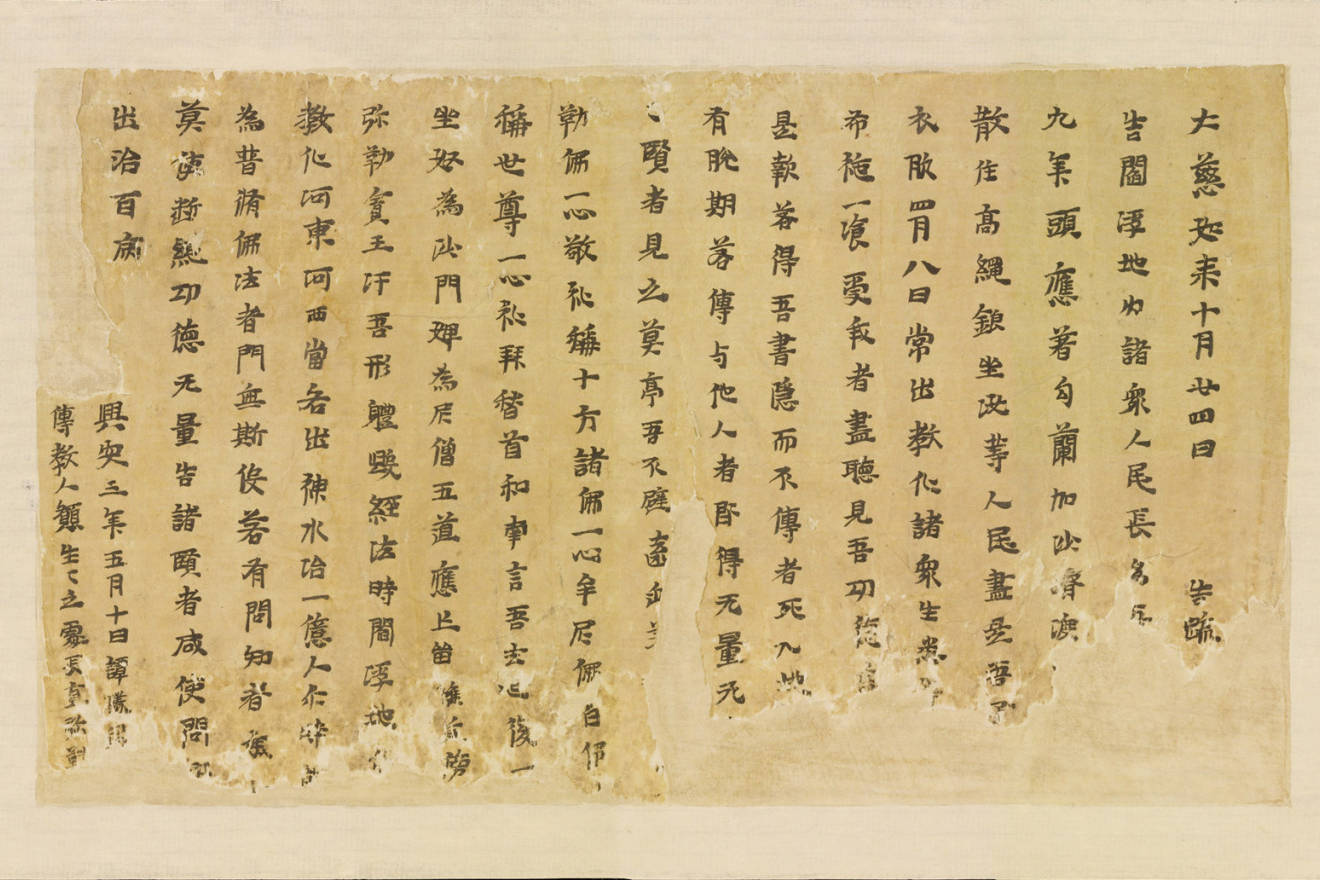 大慈如来十月廿四日 告疏
告閻浮地内諸衆人民長名
九年頭應著勾蘭加沙㴉
散住高繩鎴坐此等人民盡是吾
衣服四月八日常出教化諸衆生
布施一飡受我者盡聽見吾功
是款若得吾書隱而不傳者死入地
有脫期若傳与他人者即得无量死
賢者見之莫亭吾不避遠
勒佛一心敬礼稱十方諸佛一心牟尼佛白佛
稱世尊一心礼拜稽首和南言吾去已後一
坐奴為沙門婢為尼僧五道應上
弥勒賓王汙吾形軆毀經法時閻浮地
教化河東河西當各出神水治一億人
為普脩佛法者門無斯使若有問知者
莫使断絶功德无量告諸賢者咸使問
出治百病
興安三年五月十日譚
傳教人願生之處長直弥勒